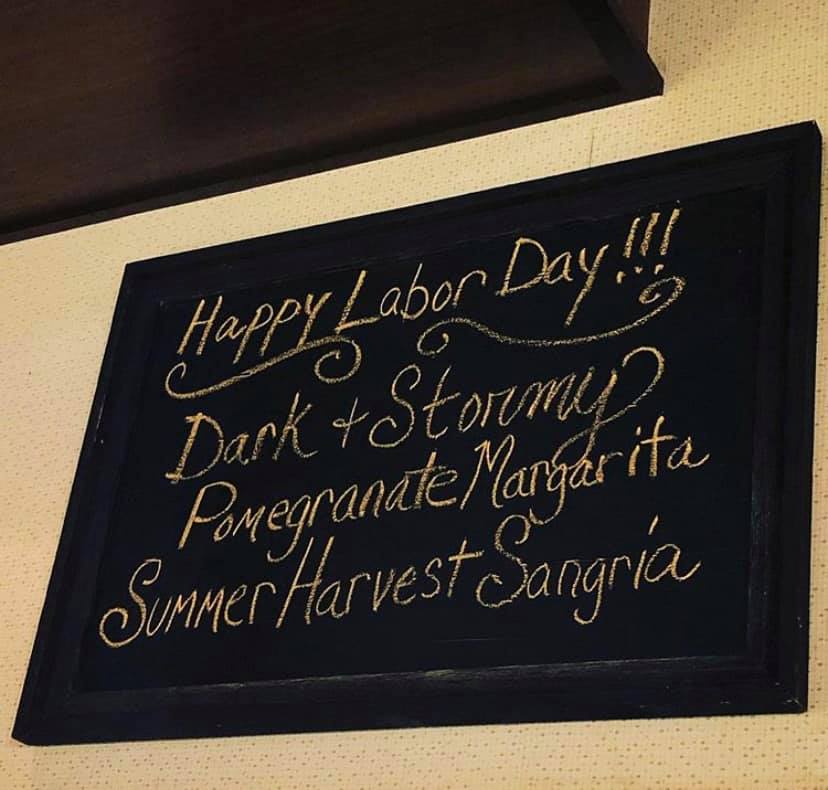 Happy Labor Day!!!
Dark + Stormy
Pomegranate Margarita
Summer Harvest Sangría